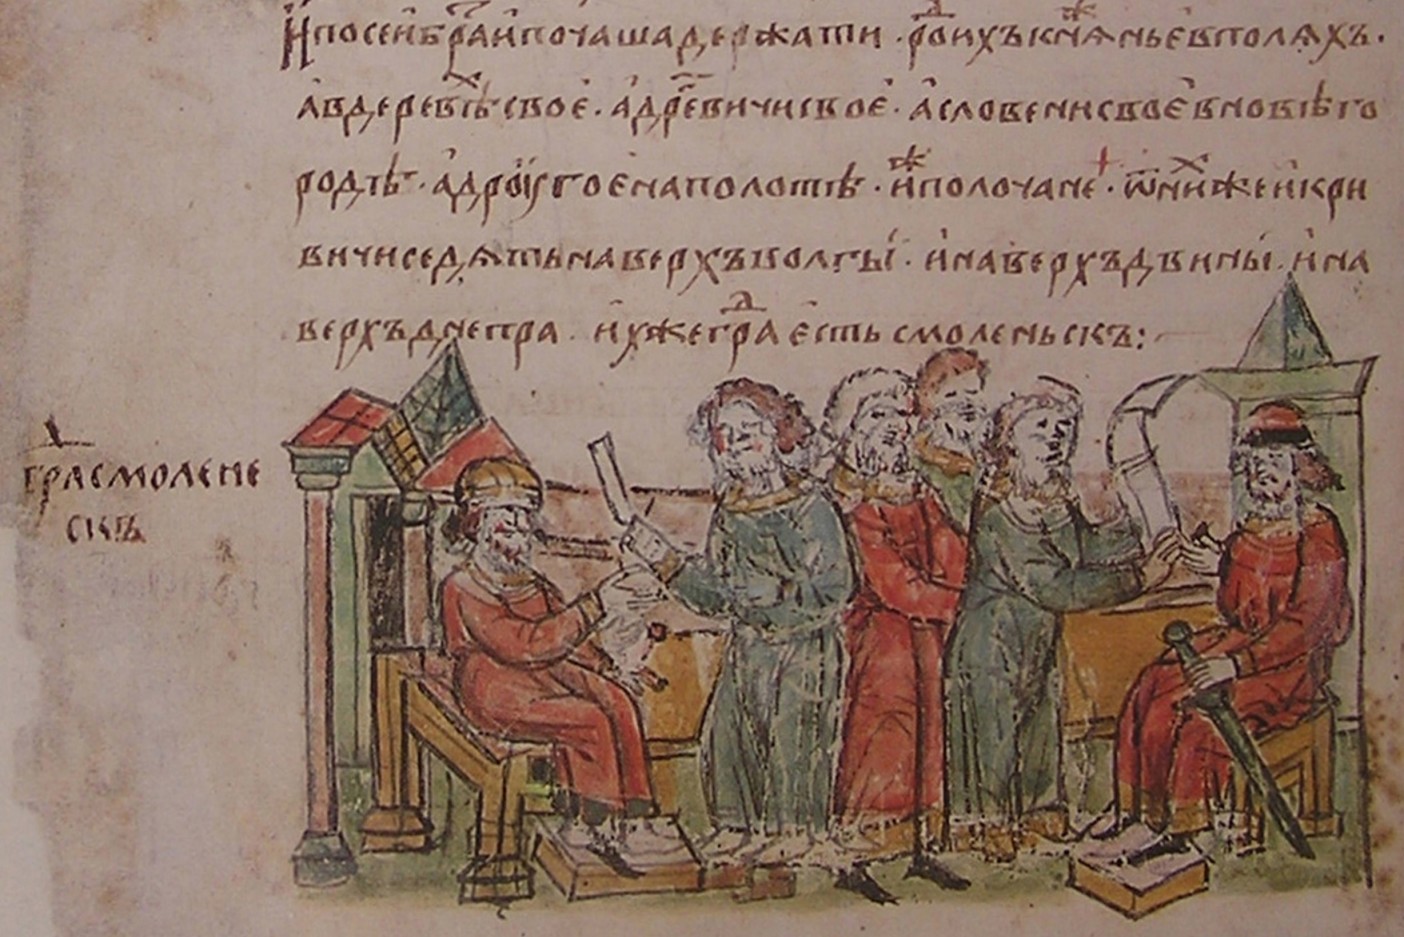 И по сеи братьи почаша держати родъ ихъ кнѧженье в полѧхъ.
а в деревлѣхъ свое. а дреговичи свое. а словени свое в новѣго
родѣ. а другое на полотѣ. иже полочане. ѿ нихже и кри
вичи седѧть на верхъ волгы. и на верхъ двины. и на
верхъ днепра. ихже градъ есть смоленьскъ:
градъ смолене
скъ